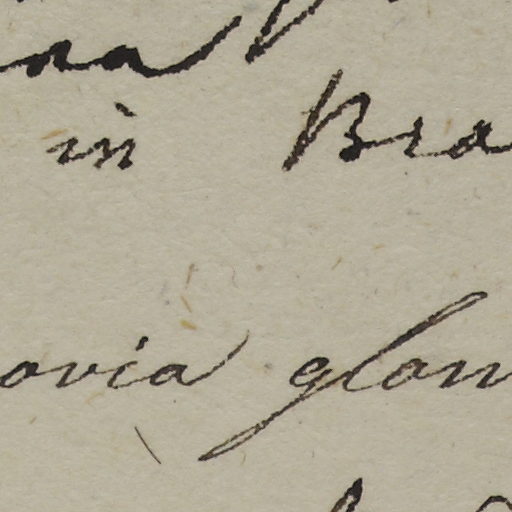 na
in Bra
ovia glan